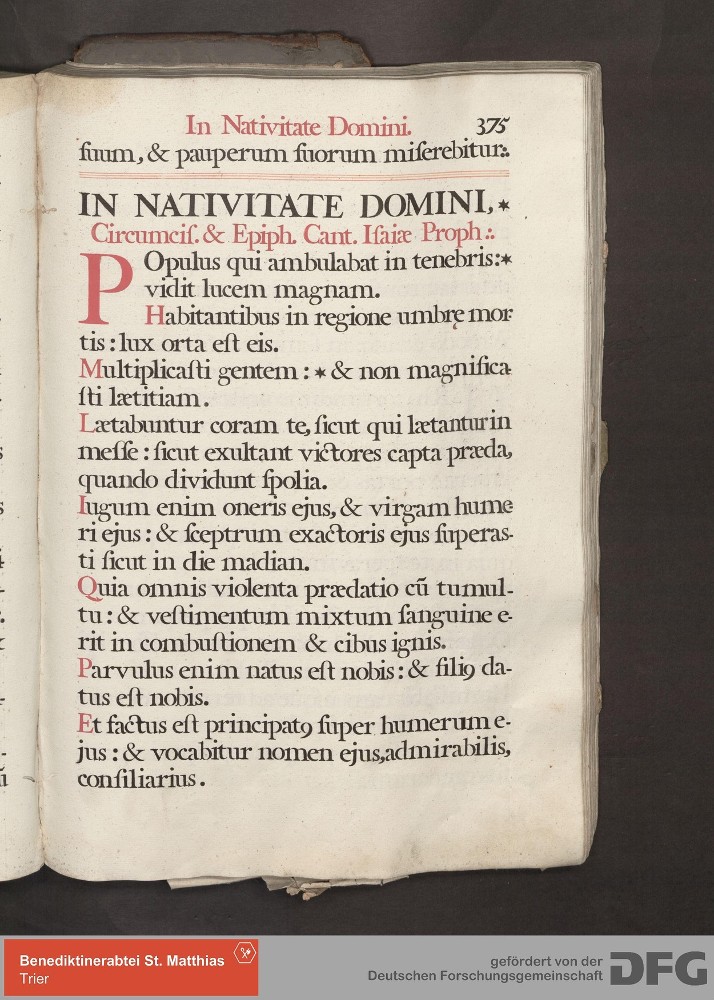 In Nativitate Domini. 375
ſuum, & pauperum ſuorum miſerebitur:.
IN NATIVITATE DOMINI, *
Circumciſ. & Epiph. Cant. Iſaiæ Proph:.
POpulus qui ambulabat in tenebris: *
vidit lucem magnam.
Habitantibus in regione umbrę mor
tis: lux orta eſt eis.
Multiplicaſti gentem: * & non magnifica
ſti lætitiam.
Lætabuntur coram te, ſicut qui lætantur in
meſſe: ſicut exultant victores capta præda,
quando dividunt ſpolia.
Iugum enim oneris ejus, & virgam hume
ri ejus: & ſceptrum exactoris ejus ſuperas-
ti ſicut in die madian.
Quia omnis violenta prædatio cū tumul-
tu: & veſtimentum mixtum ſanguine e-
rit in combuſtionem & cibus ignis.
Parvulus enim natus eſt nobis: & filiꝯ da-
tus eſt nobis.
Et factus eſt principatꝯ ſuper humerum e-
jus: & vocabitur nomen ejus, admirabilis,
conſiliarius.
Benediktinerabtei St. Matthias
Trier
gefördert von der
Deutschen Forschungsgemeinschaft DFG